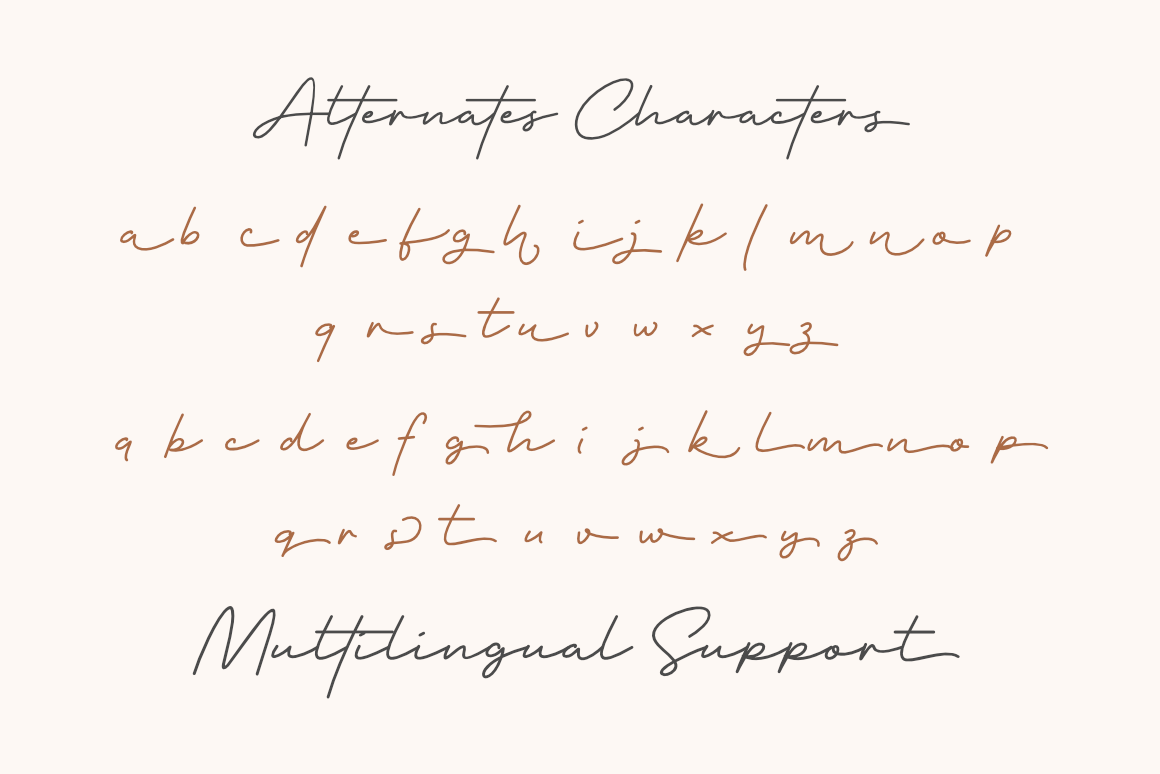 Alternates Characters
a b c d e f g h i j k l m n o p
q r s t u v w x y z
a b c d e f g h i j k l m n o p
q r s t u v w x y z
Multilingual Support